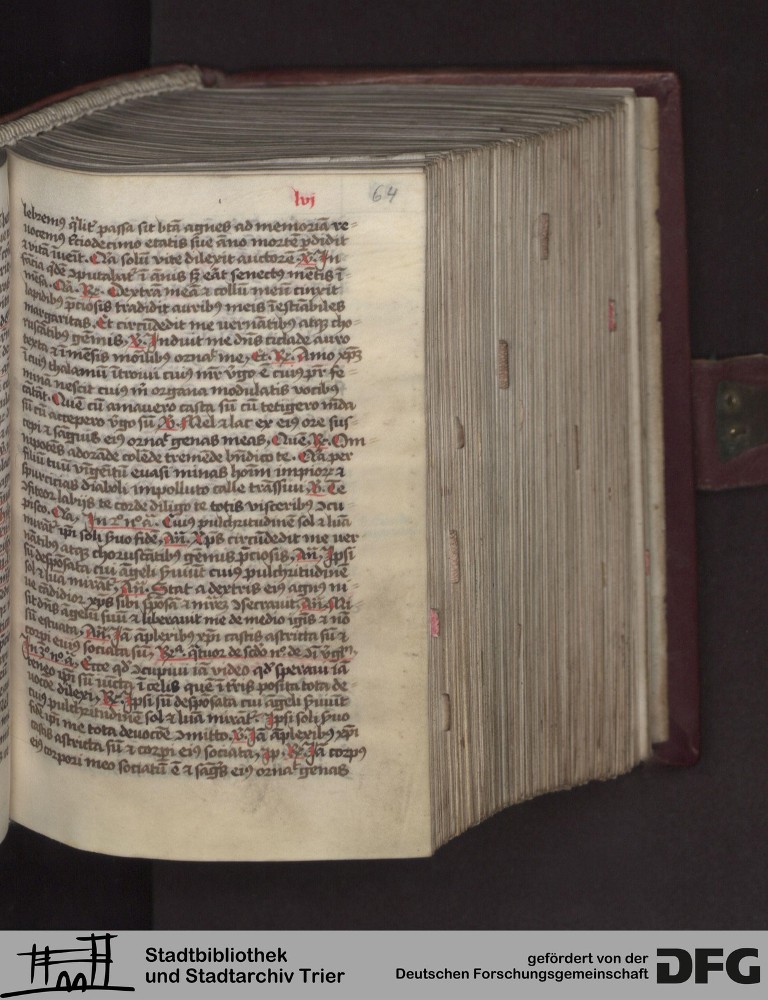 lvj
64
lebremꝰ qͣlit͛ passa sit btā agnes ad memoriā re⸗
uocemꝰ Tͥciodecimo etatis sue āno mortē ꝑdidit
⁊ vitā īuen̄t. Qͥa solū vite dilexit auctorē V̷. In
fācia qͥdē ꝯputabat͛ ī ānis sꝫ erāt senectꝰ mētis ī⸗
mēsa. Qͥa. R̷. Dextrā meā ⁊ collū meū cinxit
lapidibꝰ p̄ciosis tradidit auribꝰ meis īestīabiles
margaritas. Et circūdedit me vernātibꝰ atqꝫ cho⸗
ruscātibꝰ gēmis, V̷. Induit me dn̄s ciclade auro
texta ⁊ īmēsis mōilibꝰ ornaͭ me, Et. R̷. Amo xp̄ꝫ
ī cuiꝰ thalamū ītroiui cuiꝰ mr̄ v̓go ē cuiꝰ pr̄ fe⸗
minā nescit cuiꝰ m̄ organa modulatis vocibꝰ
cātāt. Quē cū amauero casta sū cū tetigero mūda
sū cū accepero v̓go sū V̷. Mel ⁊ lac ex eiꝰ ore sus⸗
cepi ⁊ sāguis eiꝰ ornaͭ genas meas, Quē. R̷. Om⸗
nipotēs adorāde colēde tremēde bn̄dico te. Qͥa per
filiū tuū vnigēitū euasi minas hoīm impiorꝝ ⁊
spurcicias diaboli impolluto calle trāssiui. V̷. Te
ꝯfiteor labijs te corde diligo te totis visceribꝰ ꝯcu⸗
pisco. Qͥa, In 2ͦ nͦ. a. Cuiꝰ pulchritudinē sol ⁊ lūa
mirāt͛ ip̄i soli s̓uo fidē, An̄. Xp̄s circūdedit me ver
nātibꝰ atqꝫ choruscātibꝰ gēmis p̄ciosis, An̄. Ipsi
sū despōsata cui āgeli s̓uiūt cuiꝰ pulchritudinē
sol ⁊ lūa mirāt͛, An̄. Stat a dextris eiꝰ agnꝰ ni⸗
ue cādidior xp̄s sibi spōsā ⁊ mr̄ez ꝯsecrauit, An̄. Mi
sit dn̄s āgelū suū ⁊ liberauit me de medio ignis ⁊ nō
sū estuata, An̄. Iā āplexibꝰ xp̄i castis astricta sū ⁊
corpi eiꝰ sociata sū, R̷ᵃ. qͣtuor de scd̄o nͦ. de xi v̓gīn,
In 3ͦ nͦ. a. Ecce qd̓ ꝯcupiui iā video qd̓ speraui iā
teneo ip̄i sū iūcta ī celis quē ī t̓ris posita tota de⸗
uocōe dilexi, R̷. Ipsi sū despōsata cui āgeli s̓uiūt
cuiꝰ pulchritudinē sol ⁊ lūa mirāt͛. Ipsi soli s̓uo
fidē ip̄i me tota deuocōe ꝯmitto. V̷. Iā āplexibꝰ xp̄i
castis astricta sū ⁊ corpi eiꝰ sociata, ip. R̷. Iā corpꝰ
eiꝰ corpori meo sociatū ē ⁊ sāgͥs eiꝰ ornaͭ genas
Stadtbibliothek
und Stadtarchiv Trier
gefördert von der
Deutschen Forschungsgemeinschaft
DFG